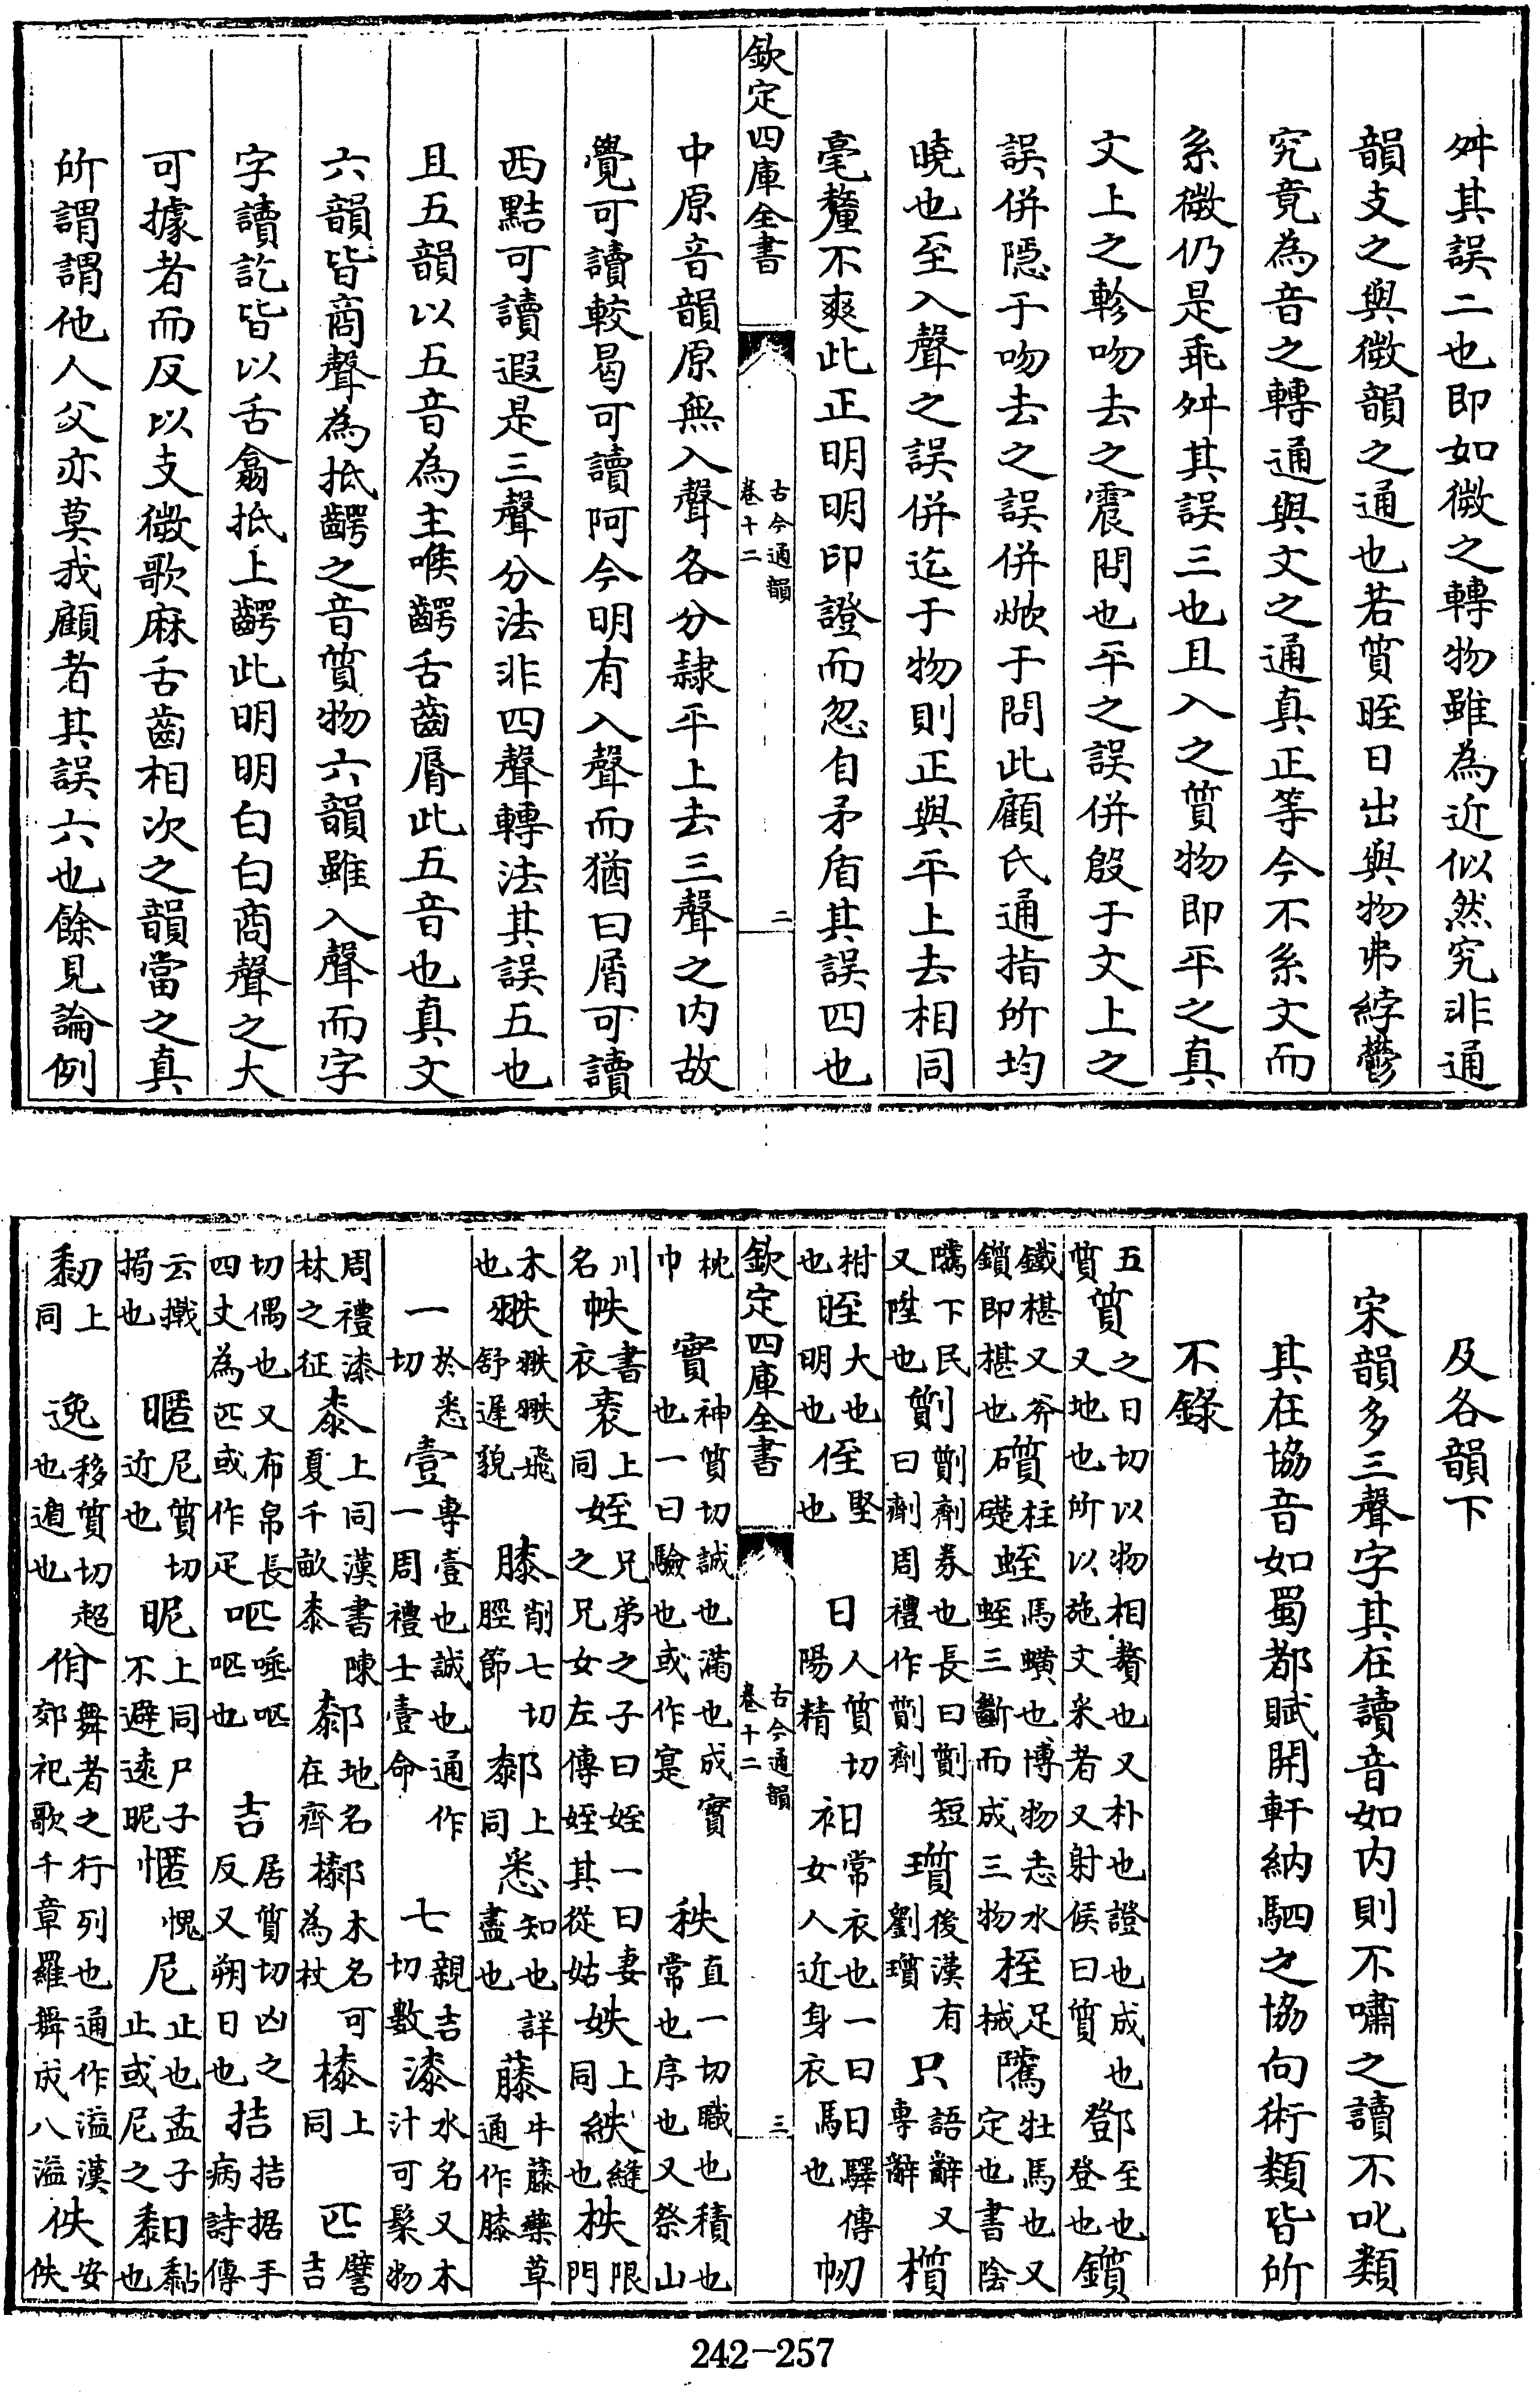 舛其誤二也即如微之轉物雖為近似然究非通
韻支之與微韻之通也若質眰日出與物弗綍鬱
究竟為音之轉通與文之通真正等今不系文而
系微仍是乖舛其誤三也且入之質物即平之真
文上之軫吻去之震問也平之誤併殷于文上之
誤併隱于吻去之誤併焮于問此顧氏通指所均
曉也至入聲之誤併迄于物則正與平上去相同
毫釐不爽此正明明印證而忽自矛盾其誤四也
欽定四庫全書
古今通韻
卷十二
二
中原音韻原無入聲各分隸平上去三聲之内故
覺可讀較曷可讀阿今明有入聲而猶曰屑可讀
西黠可讀遐是三聲分法非四聲轉法其誤五也
且五韻以五音為主喉齶舌齒脣此五音也真文
六韻皆商聲為抵齶之音質物六韻雖入聲而字
字讀訖皆以舌翕抵上齶此明明白白商聲之大
可據者而反以支微歌麻舌齒相次之韻當之真
所謂謂他人父亦莫我顧者其誤六也餘見論例
及各韻下
宋韻多三聲字其在讀音如内則不嘯之讀不叱類
其在協音如蜀都賦開軒納駟之協向術類皆所
不錄
五質質之日切以物相贅也又朴也證也成也又地也所以施文采者又射侯曰質郅至也登也鑕
鐵椹又斧鑕即椹也礩柱礎蛭馬蟥也博物志水蛭三斷而成三物桎足械隲牡馬也又定也書陰
隲下民又陞也劕劕劑券也長曰劕短曰劑周禮作劕劑瓆後漢有劉瓆只語辭又專辭櫍
柑也眰大也明也侄堅也日人質切陽精衵常衣也一曰女人近身衣馹驛傳也
欽定四庫全書
古今通韻
卷十二
三
枕巾實神質切誠也滿也成實也一曰驗也或作寔秩直一切職也積也常也序也又祭山
川名帙書衣袠上同姪兄弟之子曰姪一曰妻之兄女左傳姪其從姑妷上同紩縫也柣限門
木也翐翐翐飛舒遲貌膝削七切脛節厀上同悉知也詳盡也藤牛藤藥草通作膝
一於悉切壹專壹也誠也通作一周禮士壹命七親吉切數漆水名又木汁可髹物
周禮漆林之征桼上同漢書陳夏千畝桼地名在齊木名可為杖上同匹譬吉
切偶也又布帛長四丈為匹或作疋唾也吉居質切凶之反又朔日也拮拮据手病詩傳
云撠挶也暱尼質切近也昵上同尸子不避遠昵慝愧尼止也孟子止或尼之䵒黏也
䵑上同逸移質切超也遁也佾舞者之行列也通作溢漢郊祀歌千章羅舞成八溢佚安佚
242-257